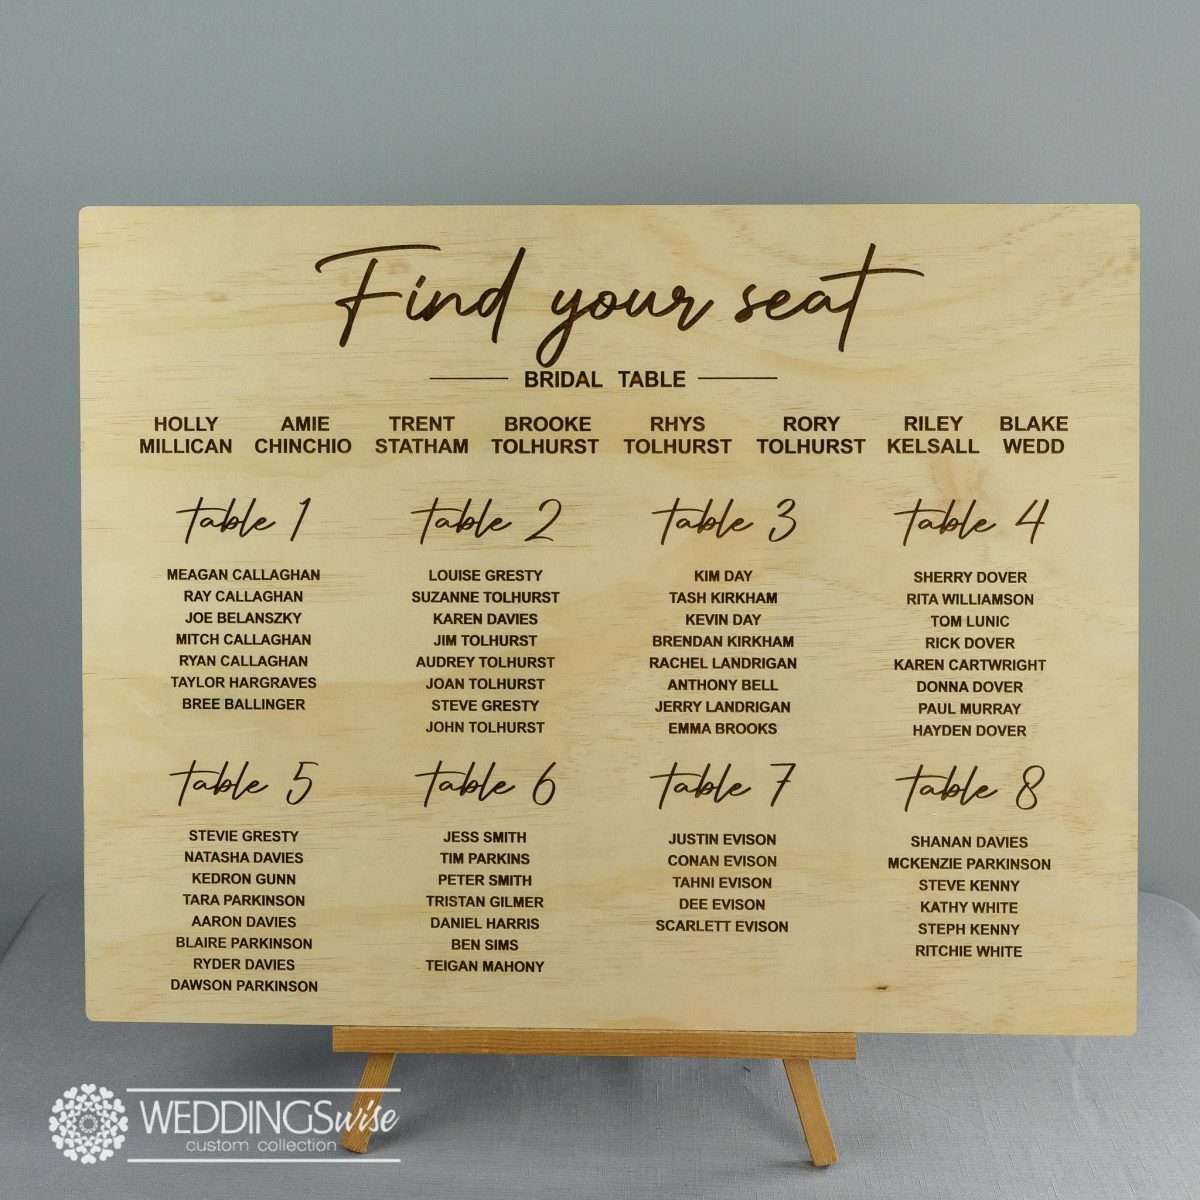 Find your seat
BRIDAL TABLE
HOLLY MILLICAN
AMIE CHINCHIO
TRENT STATHAM
BROOKE TOLHURST
RHYS TOLHURST
RORY TOLHURST
RILEY KELSALL
BLAKE WEDD
table 1
MEAGAN CALLAGHAN
RAY CALLAGHAN
JOE BELANSZKY
MITCH CALLAGHAN
RYAN CALLAGHAN
TAYLOR HARGRAVES
BREE BALLINGER
table 2
LOUISE GRESTY
SUZANNE TOLHURST
KAREN DAVIES
JIM TOLHURST
AUDREY TOLHURST
JOAN TOLHURST
STEVE GRESTY
JOHN TOLHURST
table 3
KIM DAY
TASH KIRKHAM
KEVIN DAY
BRENDAN KIRKHAM
RACHEL LANDRIGAN
ANTHONY BELL
JERRY LANDRIGAN
EMMA BROOKS
table 4
SHERRY DOVER
RITA WILLIAMSON
TOM LUNIC
RICK DOVER
KAREN CARTWRIGHT
DONNA DOVER
PAUL MURRAY
HAYDEN DOVER
table 5
STEVIE GRESTY
NATASHA DAVIES
KEDRON GUNN
TARA PARKINSON
AARON DAVIES
BLAIRE PARKINSON
RYDER DAVIES
DAWSON PARKINSON
table 6
JESS SMITH
TIM PARKINS
PETER SMITH
TRISTAN GILMER
DANIEL HARRIS
BEN SIMS
TEIGAN MAHONY
table 7
JUSTIN EVISON
CONAN EVISON
TAHNI EVISON
DEE EVISON
SCARLETT EVISON
table 8
SHANAN DAVIES
MCKENZIE PARKINSON
STEVE KENNY
KATHY WHITE
STEPH KENNY
RITCHIE WHITE
WEDDINGSwise
custom collection